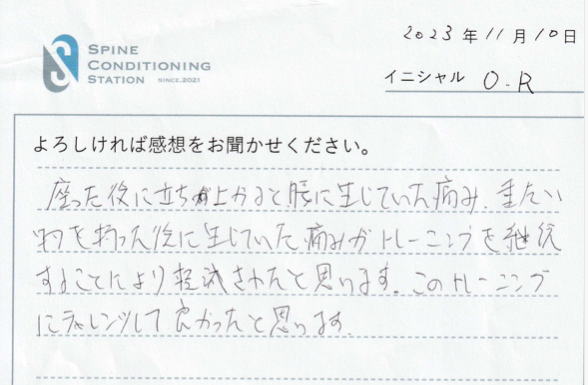 SPINE
CONDITIONING
STATION SINCE.2021
2023年11月10日
イニシャル O.R
よろしければ感想をお聞かせください。
座った後に立ち上がると腰に生じていた痛み、重たい
物を持った後に生じていた痛みがトレーニングを継続
することにより軽減されたと思います。このトレーニング
にチャレンジして良かったと思います。